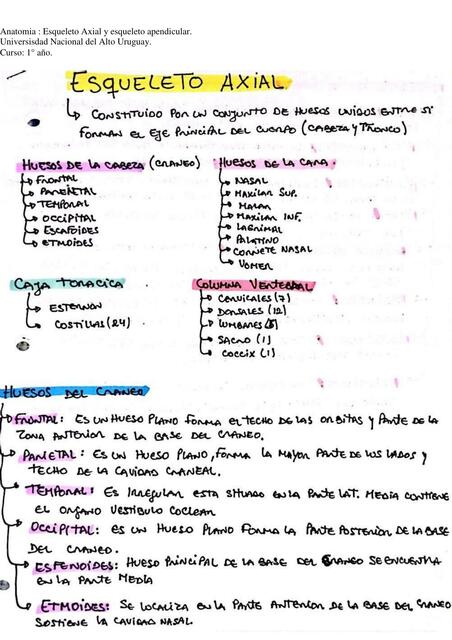 Anatomia : Esqueleto Axial y esqueleto apendicular.
Universisdad Nacional del Alto Uruguay.
Curso: 1° año.
ESQUELETO AXIAL
↳ CONSTITUIDO POR UN CONJUNTO DE HUESOS UNIDOS ENTRE SI
FORMAN EL EJE PRINCIPAL DEL CUERPO (CABEZA Y TRONCO)
HUESOS DE LA CABEZA (CRANEO)
FRONTAL
PARIETAL
TEMPORAL
OCCIPITAL
ESCAFOIDES
ETMOIDES
HUESOS DE LA CARA
NASAL
MAXILAR SUP.
MALAR
MAXILAR INF.
LAGRIMAL
PALATINO
CORNETE NASAL
VOMER
CAJA TORACICA
ESTERNON
COSTILLAS (24)
COLUMNA VERTEBRAL
CERVICALES (7)
DORSALES (12)
LUMBARES (5)
SACRO (1)
COCCIX (1)
HUESOS DEL CRANEO
FRONTAL: ES UN HUESO PLANO FORMA EL TECHO DE LAS ORBITAS Y PARTE DE LA
ZONA ANTERIOR DE LA BASE DEL CRANEO.
PARIETAL: ES UN HUESO PLANO, FORMA LA MAYOR PARTE DE LOS LADOS Y
TECHO DE LA CAVIDAD CRANEAL.
TEMPORAL: ES IRREGULAR ESTA SITUADO EN LA PARTE LAT. MEDIA CONTIENE
EL ORGANO VESTIBULO COCLEAR
OCCIPITAL: ES UN HUESO PLANO FORMA LA PARTE POSTERIOR DE LA BASE
DEL CRANEO.
ESFENOIDES: HUESO PRINCIPAL DE LA BASE DEL CRANEO SE ENCUENTRA
EN LA PARTE MEDIA
ETMOIDES: SE LOCALIZA EN LA PARTE ANTERIOR DE LA BASE DEL CRANEO
SOSTIENE LA CAVIDAD NASAL.